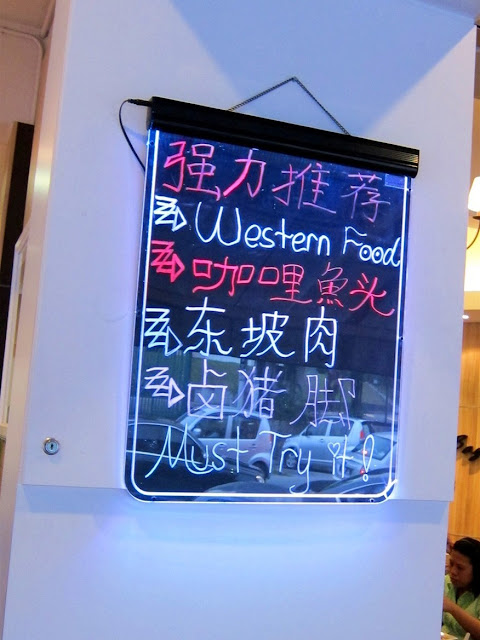 强力推荐
Western Food
咖哩魚头
东坡肉
卤猪脚
Must Try it!